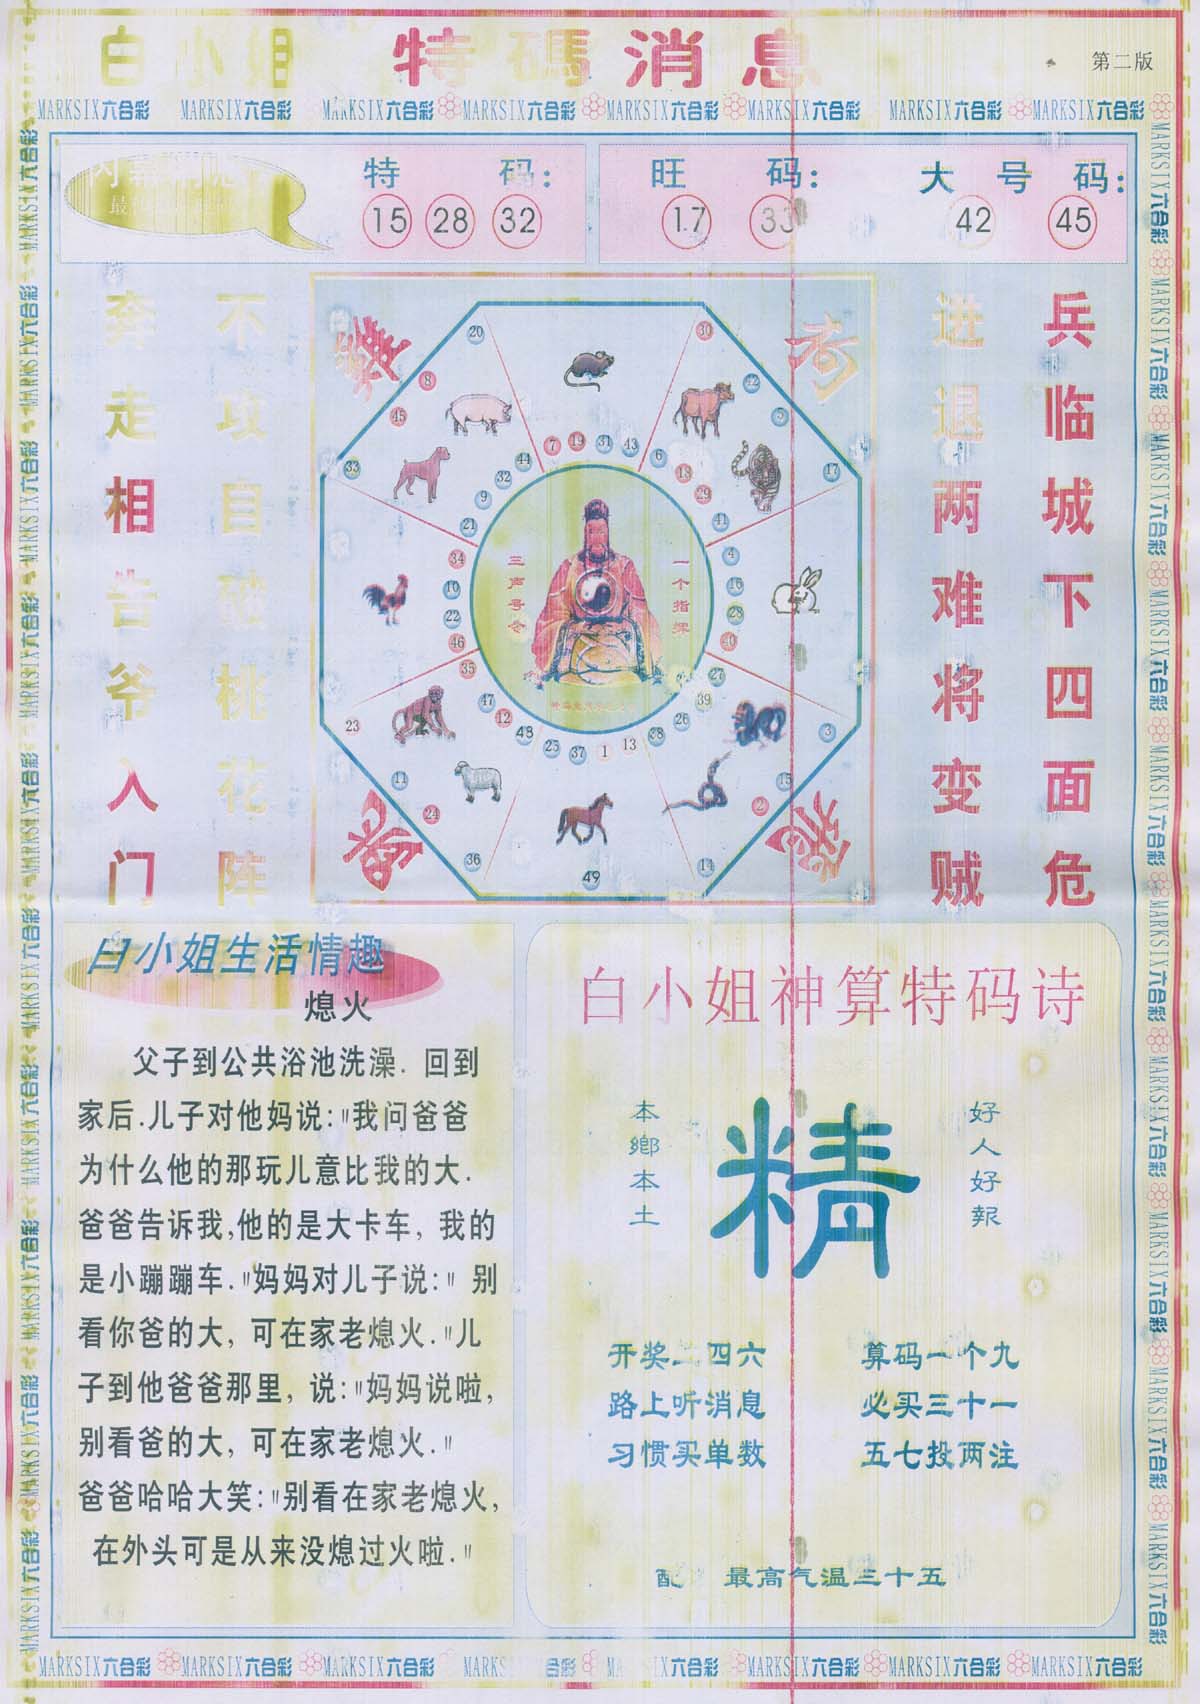 白小姐 特碼消息
第二版
MARKSIX六合彩 MARKSIX六合彩 MARKSIX六合彩 MARKSIX六合彩 MARKSIX六合彩 MARKSIX六合彩 MARKSIX六合彩 MARKSIX六合彩
特 码:
15 28 32
旺 码:
17 33
大 号 码:
42 45
兵临城下四面危
进退两难将变贼
不攻自破桃花阵
奔走相告爷入门
奇
龙
20 30
8 42
45 5
33 17
7 19 31 43
44 6
32 18
9 29
21 41
34 4
10 16
22 28
46 40
35 27
47 39
12 26
48 38
25 37 1 13
23 3
11 15
24 2
36 14
49
一个指挥
三声号令
白小姐生活情趣
熄火
父子到公共浴池洗澡. 回到
家后.儿子对他妈说:"我问爸爸
为什么他的那玩儿意比我的大.
爸爸告诉我,他的是大卡车, 我的
是小蹦蹦车."妈妈对儿子说:" 别
看你爸的大, 可在家老熄火."儿
子到他爸爸那里, 说:"妈妈说啦,
别看爸的大, 可在家老熄火."
爸爸哈哈大笑:"别看在家老熄火,
在外头可是从来没熄过火啦."
白小姐神算特码诗
好人好報
精
本鄉本土
开奖二四六 算码一个九
路上听消息 必买三十一
习惯买单数 五七投两注
配 最高气温三十五
MARKSIX六合彩 MARKSIX六合彩 MARKSIX六合彩 MARKSIX六合彩 MARKSIX六合彩 MARKSIX六合彩 MARKSIX六合彩